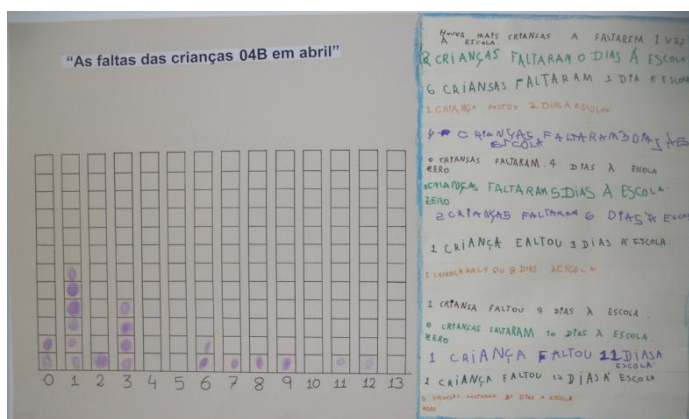 "As faltas das crianças 04B em abril"
0 1 2 3 4 5 6 7 8 9 10 11 12 13
HOUVE MAIS CRIANÇAS A FALTAREM 1 VEZ
À ESCOLA.
2 CRIANÇAS FALTARAM 0 DIAS Á ESCOLA
6 CRIANSAS FALTARAM 1 DIA À ESCOLA
1 CRIANÇA FALTOU 2 DIAS À ESCOLA
4 CRIANÇAS FALTARAM 3 DIAS À ES
ESCOLA
0 CRIANSAS FALTARAM 4 DIAS À ESCOLA
ZERO
0 CRIANÇAS FALTARAM 5 DIAS À ESCOLA.
ZERO
2 CRIANÇAS FALTARAM 6 DIAS À ESCOL
1 CRIANÇA FALTOU DIAS À ESCOLA.
1 8 DIAS
1 CRIANÇA FALTOU 9 DIAS À ESCOLA
0 CRIANÇAS FALTARAM 10 DIAS À ESCOLA.
ZERO
1 CRIANÇA FALTOU 11 DIAS A
ESCOLA
1 CRIANÇA FALTOU 12 DIAS À ESCOLA
DIAS À ESCOLA